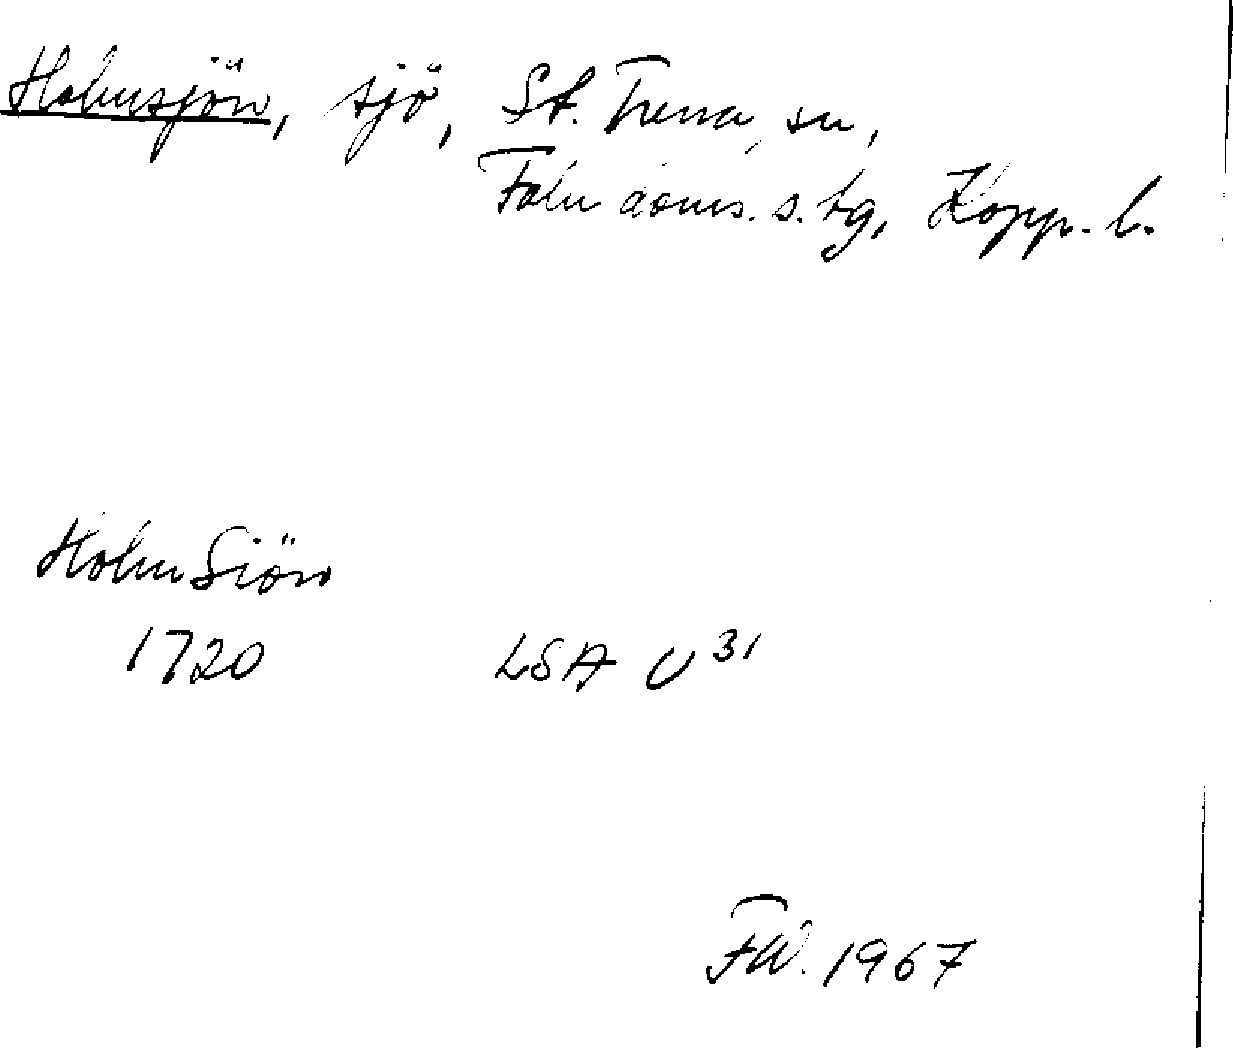 Holmsjön, sjö, St. Tuna, sn,
Falu doms. s. tg, Kopp. l.
Holm Siön
1720 LSA U 31
FW. 1967